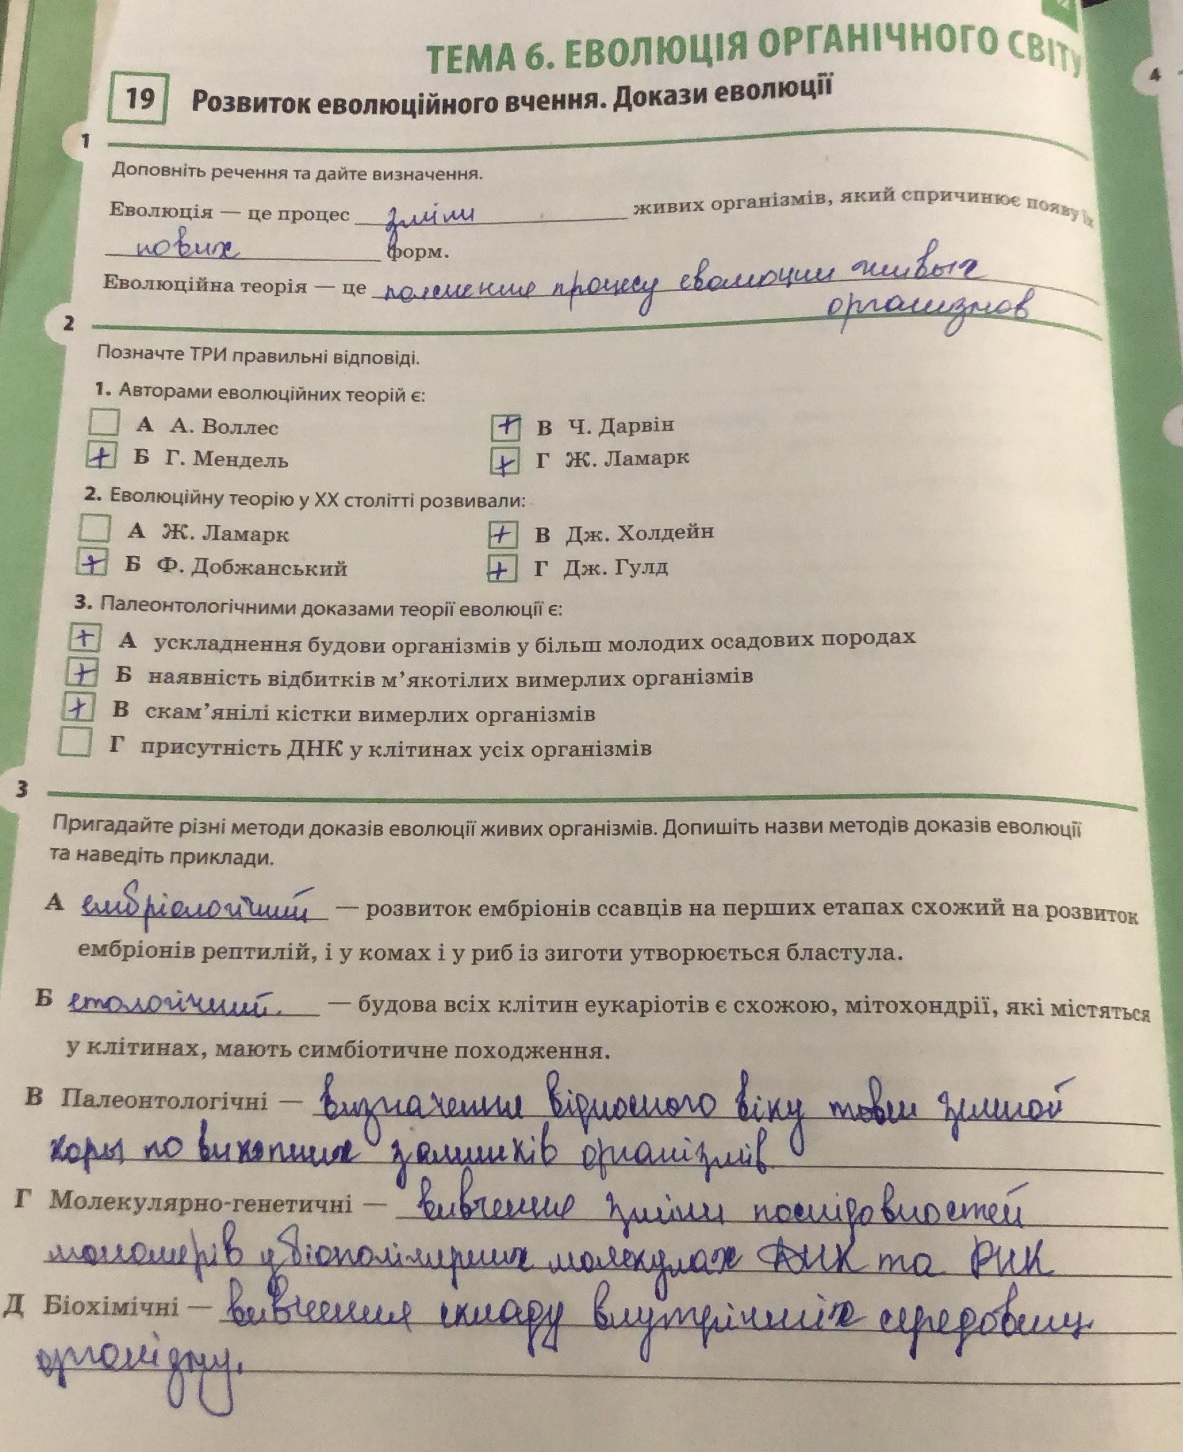 ТЕМА 6. ЕВОЛЮЦІЯ ОРГАНІЧНОГО СВІТУ
4
19 Розвиток еволюційного вчення. Докази еволюції
1
Доповніть речення та дайте визначення.
Еволюція — це процес зміни живих організмів, який спричинює появу їх
нових форм.
Еволюційна теорія — це пояснение процесу еволюции живых
организмов
2
Позначте ТРИ правильні відповіді.
1. Авторами еволюційних теорій є:
А А. Воллес + В Ч. Дарвін
+ Б Г. Мендель + Г Ж. Ламарк
2. Еволюційну теорію у ХХ столітті розвивали:
А Ж. Ламарк + В Дж. Холдейн
+ Б Ф. Добжанський + Г Дж. Гулд
3. Палеонтологічними доказами теорії еволюції є:
+ А ускладнення будови організмів у більш молодих осадових породах
+ Б наявність відбитків м’якотілих вимерлих організмів
+ В скам’янілі кістки вимерлих організмів
Г присутність ДНК у клітинах усіх організмів
3
Пригадайте різні методи доказів еволюції живих організмів. Допишіть назви методів доказів еволюції
та наведіть приклади.
А ембріологічний — розвиток ембріонів ссавців на перших етапах схожий на розвиток
ембріонів рептилій, і у комах і у риб із зиготи утворюється бластула.
Б етологічний. — будова всіх клітин еукаріотів є схожою, мітохондрії, які містяться
у клітинах, мають симбіотичне походження.
В Палеонтологічні — визначення відносного віку земной
коры по викопних залишків організмів
Г Молекулярно-генетичні — вивчение зміни послідовностей
мономерів у біополімерних молекулах ДНК та РНК
Д Біохімічні — вивчення складу внутрішніх середовищ
організму.